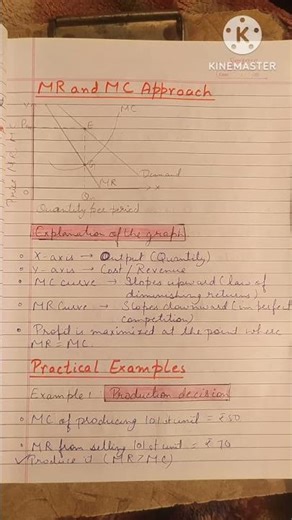 KINEMASTER
MR and MC Approach
Y
MC
P₀
E
G
Price, MR, MC
O
Q₀
MR
X
Demand
Quantity per period
Explanation of the graph
X-axis → Output (Quantity)
Y-axis → Cost / Revenue
MC curve → Slopes upward (law of
diminishing returns)
MR Curve → Slopes downward (imperfect
competition)
Profit is maximized at the point where
MR = MC.
Practical Examples
Example: Production decision
MC of producing 101st unit = ₹50
MR from selling 101st unit = ₹70
✓ Produce it (MR > MC)